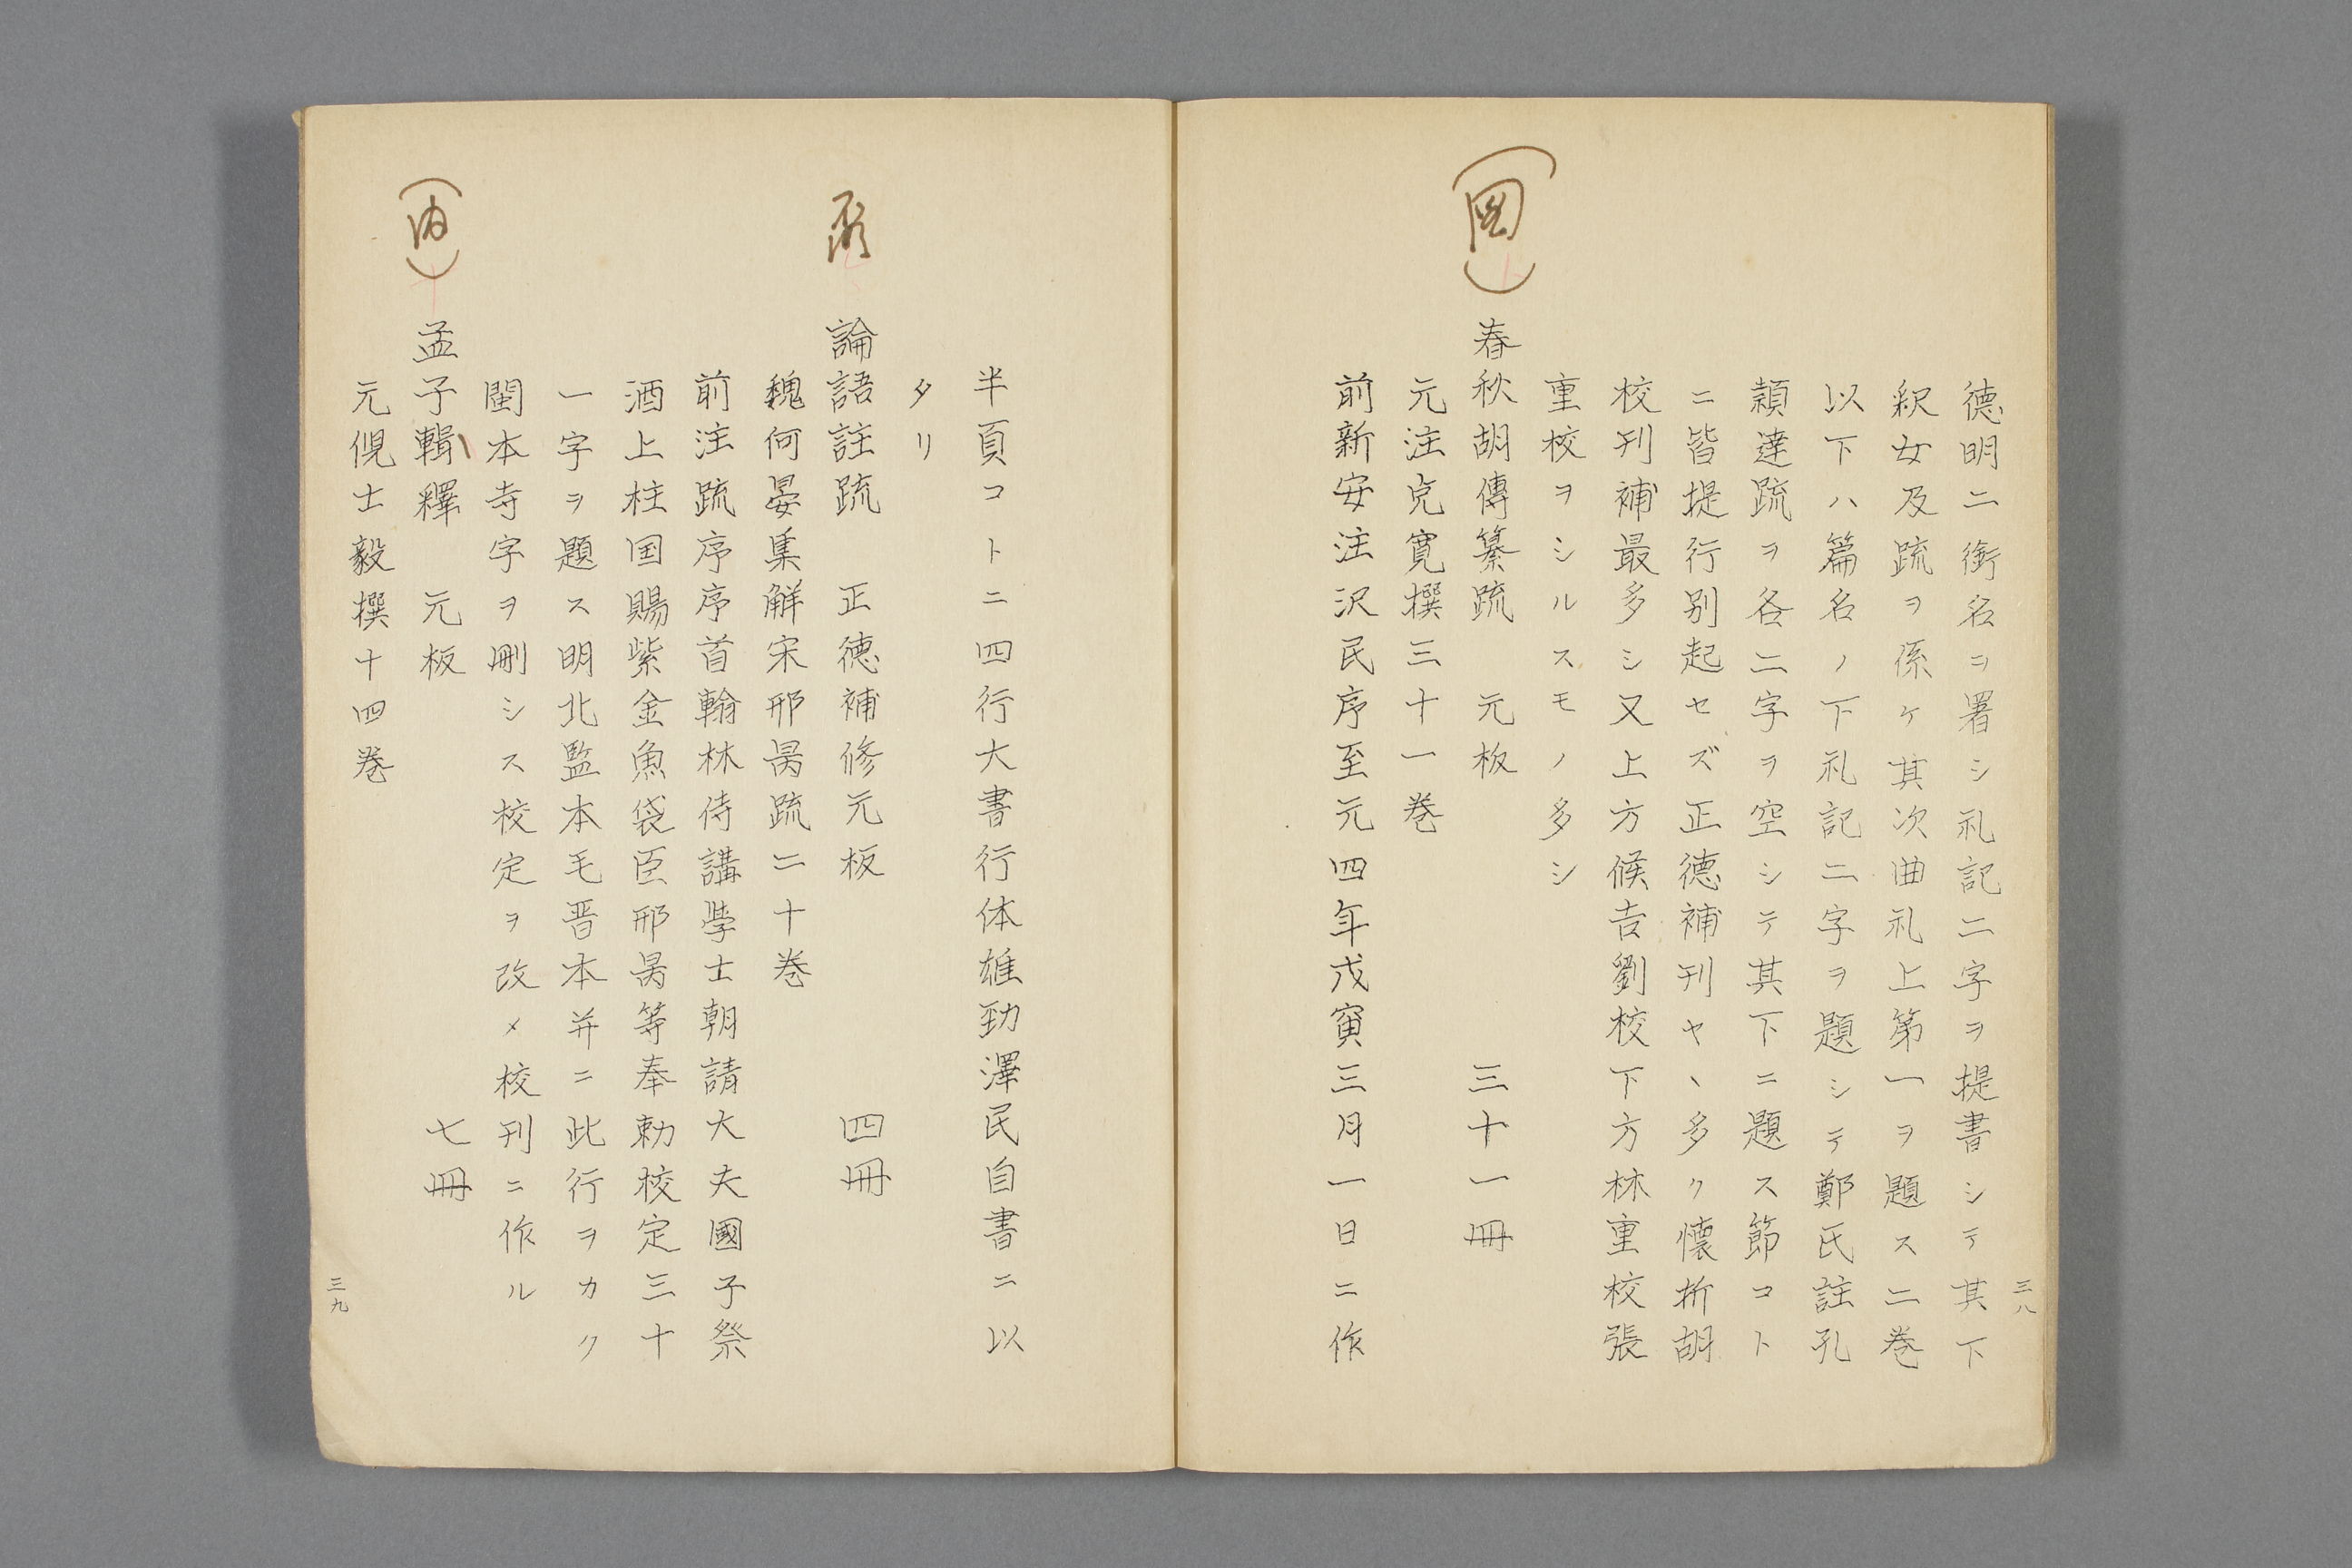 三八
德明ニ銜名ヲ署シ礼記二字ヲ提書シテ其下
釈女及疏ヲ係ケ其次曲礼上第一ヲ題ス二巻
以下ハ篇名ノ下礼記二字ヲ題シテ鄭氏註孔
頴達疏ヲ各二字ヲ空シテ其下ニ題ス節コト
ニ皆提行別起セズ正德補刊ヤヽ多ク懐折胡
校刊補最多シ又上方候吉劉校下方林重校張
重校ヲシルスモノ多シ
(図)
春秋胡傳纂疏　元板　三十一冊
元注克寛撰三十一巻
前新安注沢民序至元四年戊寅三月一日ニ作
半頁コトニ四行大書行体雄勁澤民自書ニ以
タリ
論語註疏　正德補修元板　四冊
魏何晏集解宋邢昺疏二十巻
前注疏序序首翰林侍講學士朝請大夫國子祭
酒上柱国賜紫金魚袋臣邢昺等奉勅校定三十
一字ヲ題ス明北監本毛晋本并ニ此行ヲカク
閩本寺字ヲ刪シス校定ヲ改メ校刊ニ作ル
(内)
孟子輯釋　元板　七冊
元倪士毅撰十四巻
三九